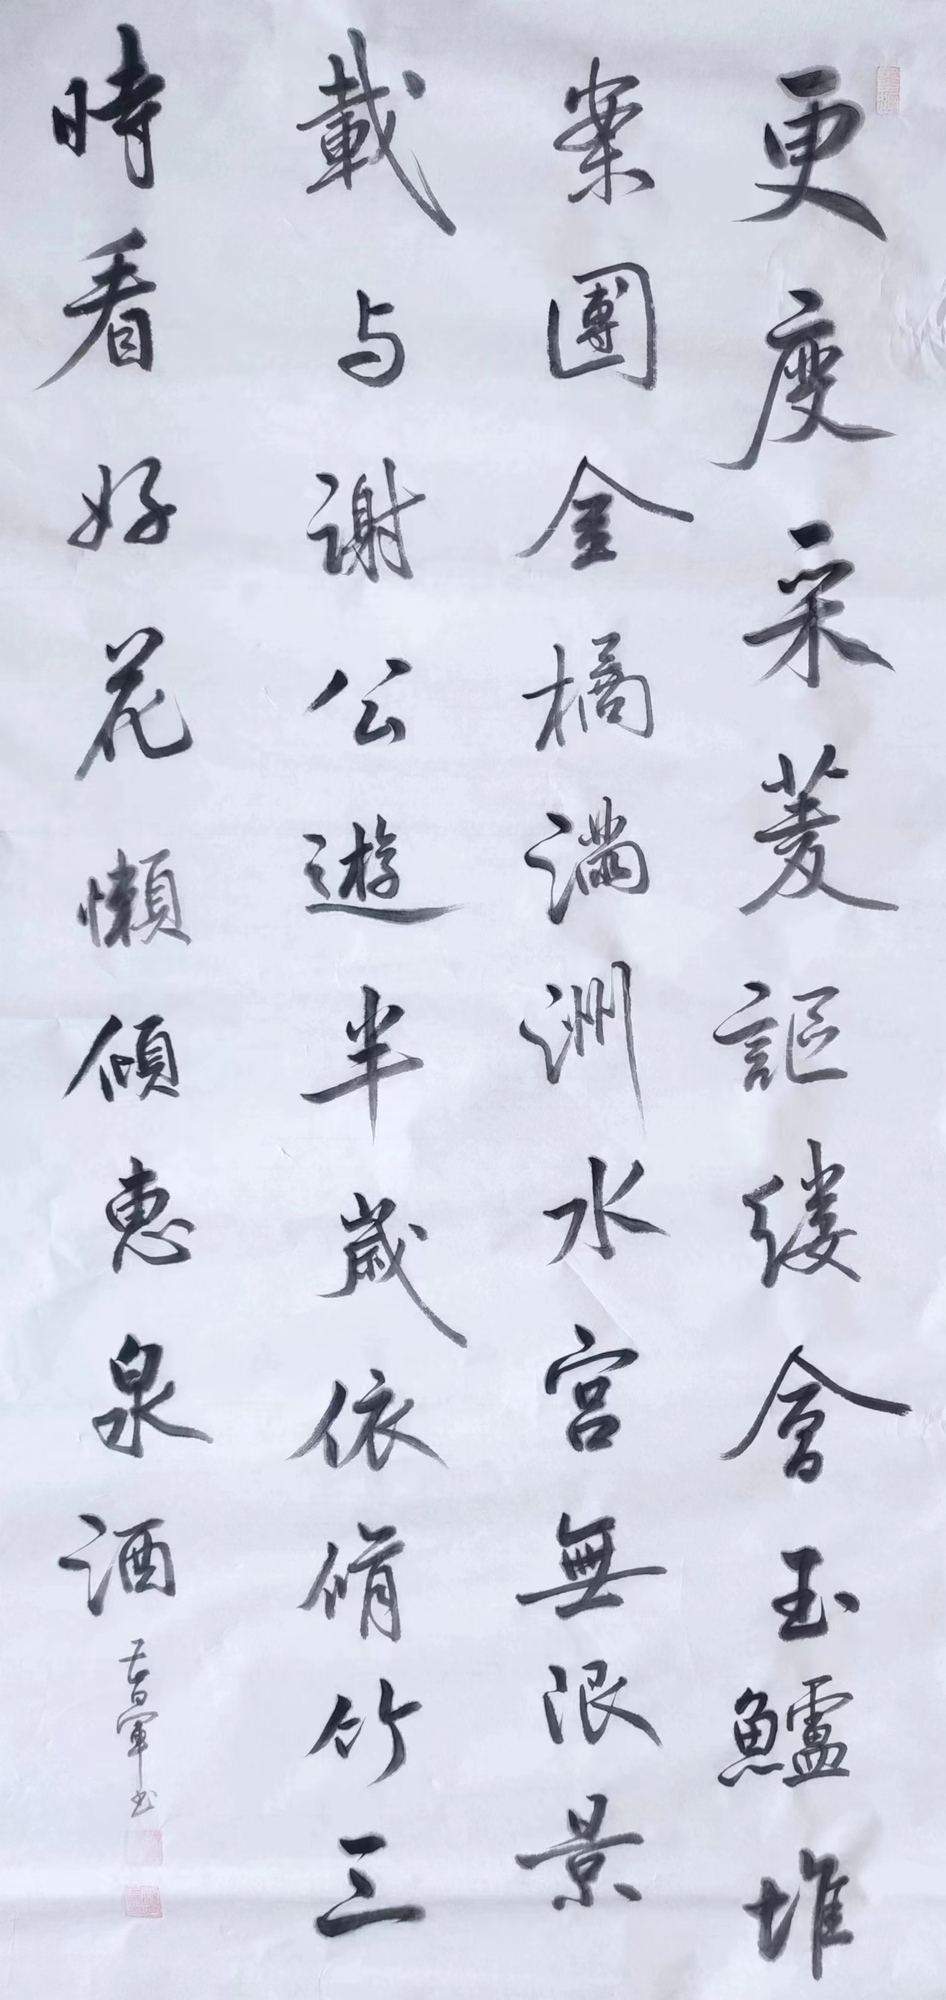 更度采菱謳缕會玉鱸堆
案團金橘满洲水宫無限景
載与謝公遊半歲依脩竹三
時看好花懶傾惠泉酒
书